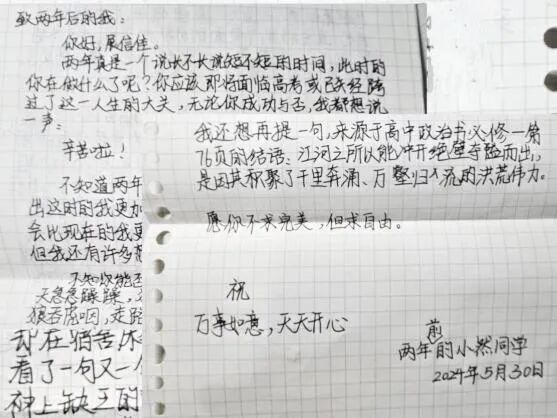 致两年后的我：
你好，展信佳。
两年真是一个说长不长说短不短的时间，此时的
你在做什么了呢？你应该即将面临高考或已经跨
过了这一人生的大关，无论你成功与否，我都想说
一声：
辛苦啦！
不知道两年
出这时的我更加
会比现在的我更
但我还有许多想
不知你能否
天急急躁躁，
狼吞虎咽，走路
却在宿舍
看了一句又一
神上缺乏的
我还想再提一句，来源于高中政治书必修一第
76页的结语：江河之所以能冲开绝壁夺隘而出，
是因其积聚了千里奔涌、万壑归流的洪荒伟力。
愿你不求完美，但求自由。
祝
万事如意，天天开心
两年前的小然同学
2024年5月30日